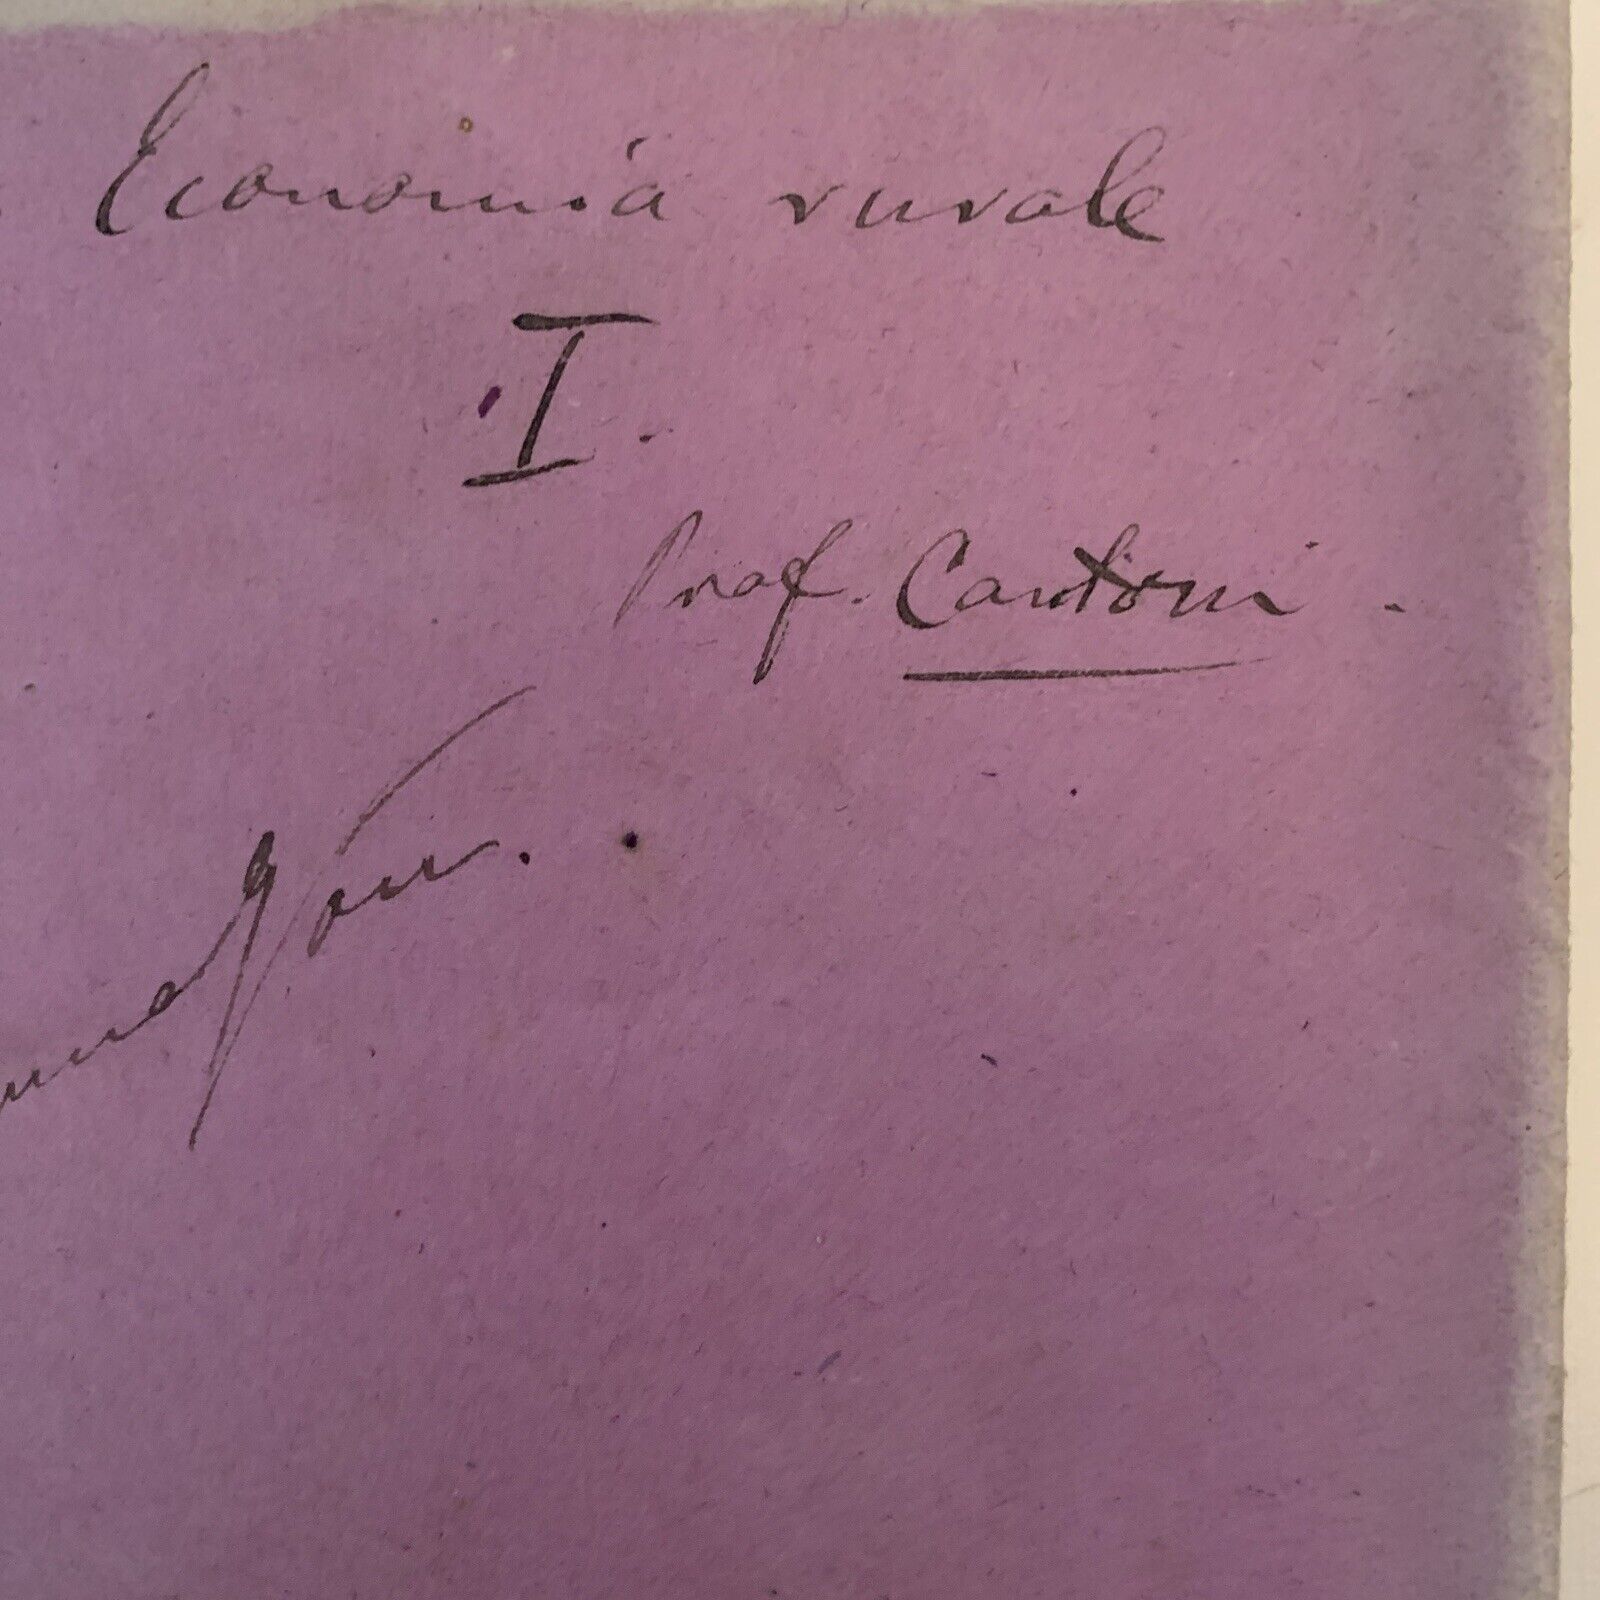 Economia rurale
I.
Prof. Cantoni.